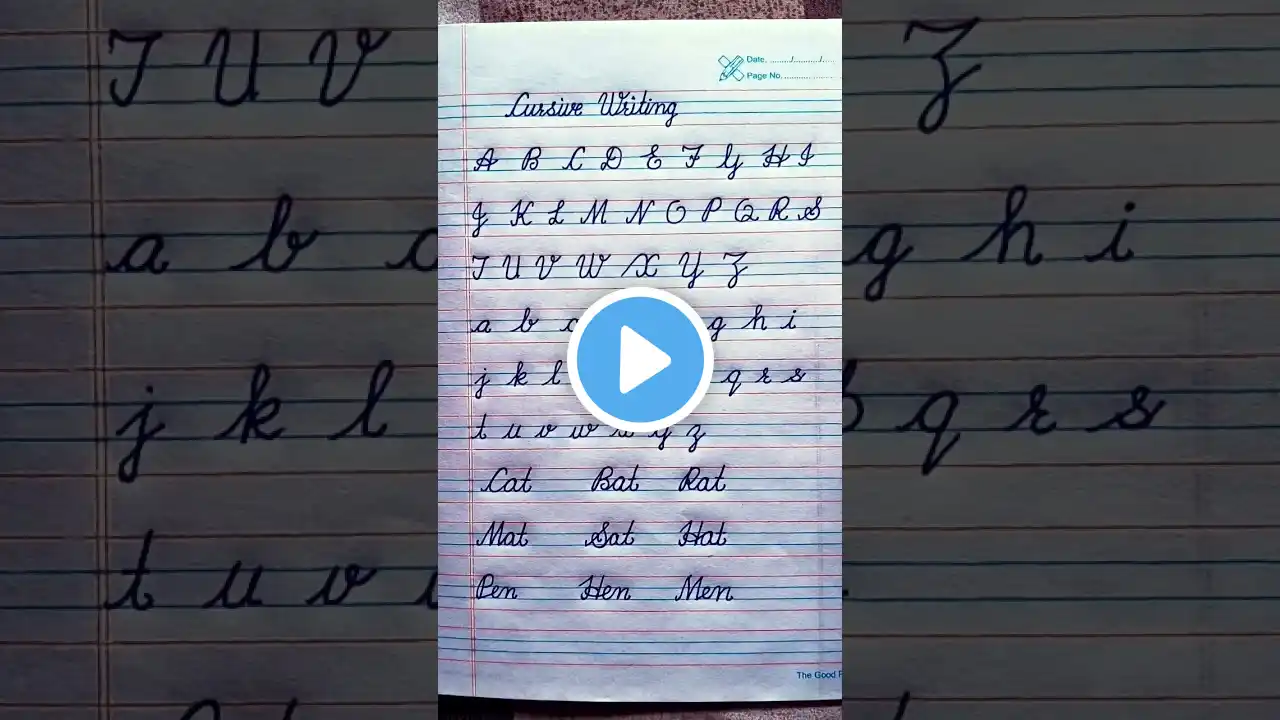 Date. ........./........../.....
Page No. ........... ........
Cursive Writing
A B C D E F G H I
J K L M N O P Q R S
T U V W X Y Z
a b c g h i
j k l q r s
t u v w x y z
Cat Bat Rat
Mat Sat Hat
Pen Hen Men
The Good